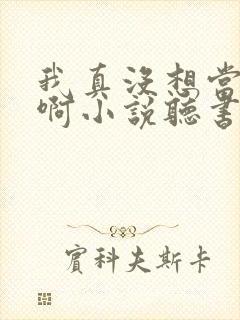 我真没想当
啊小說聽書
賓科夫斯卡